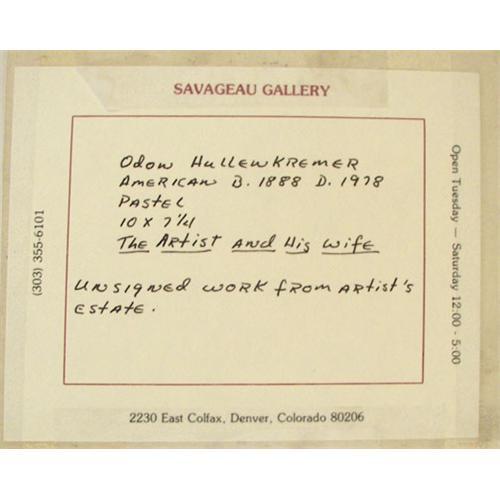 SAVAGEAU GALLERY
Odon HullenKremer
American B. 1888 D. 1978
Pastel
10 x 7 1/4
The Artist and His Wife
Unsigned work from artist's
estate.
(303) 355-6101
Open Tuesday — Saturday 12:00 - 5:00
2230 East Colfax, Denver, Colorado 80206